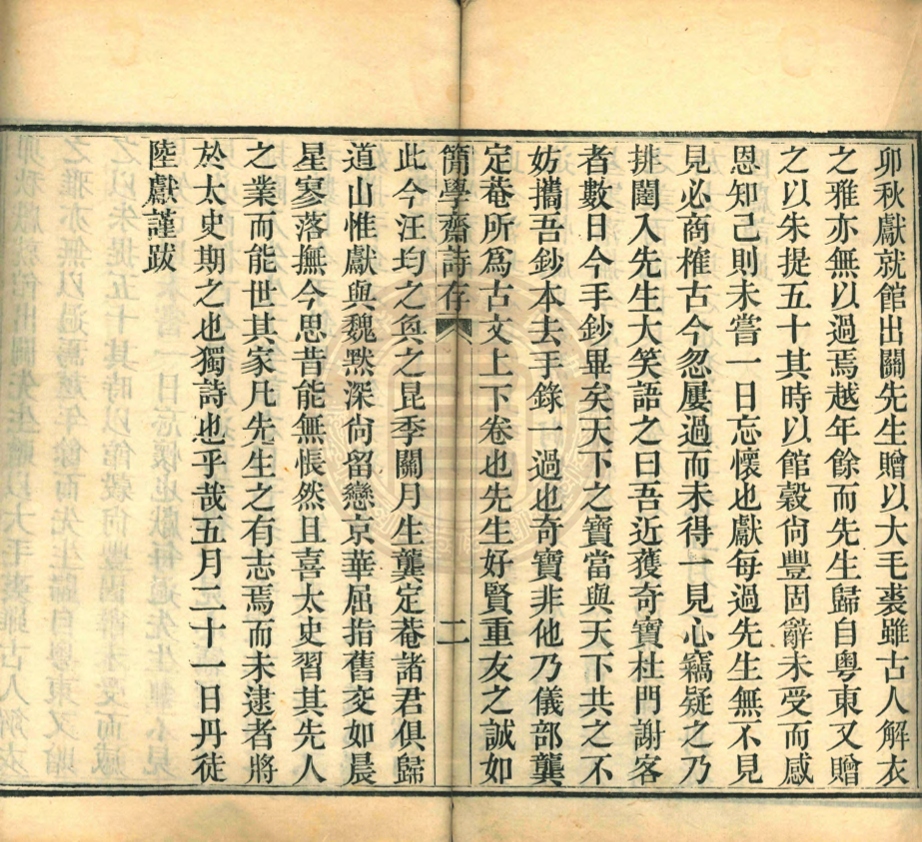 卯秋獻就館出關先生贈以大毛裘雖古人解衣
之雅亦無以過焉越年餘而先生歸自粤東又贈
之以朱提五十其時以館穀尙豐固辭未受而感
恩知己則未嘗一日忘懷也獻每過先生無不見
見必商榷古今忽屢過而未得一見心竊疑之乃
排闥入先生大笑語之曰吾近獲奇寶杜門謝客
者數日今手鈔畢矣天下之寶當與天下共之不
妨攜吾鈔本去手錄一過也奇寶非他乃儀部龔
定菴所爲古文上下卷也先生好賢重友之誠如
簡學齋詩存 二
此今汪均之奐之昆季關月生龔定菴諸君俱歸
道山惟獻與魏默深尙留戀京華屈指舊交如晨
星寥落撫今思昔能無悵然且喜太史習其先人
之業而能世其家凡先生之有志焉而未逮者將
於太史期之也獨詩也乎哉五月二十一日丹徒
陸獻謹跋